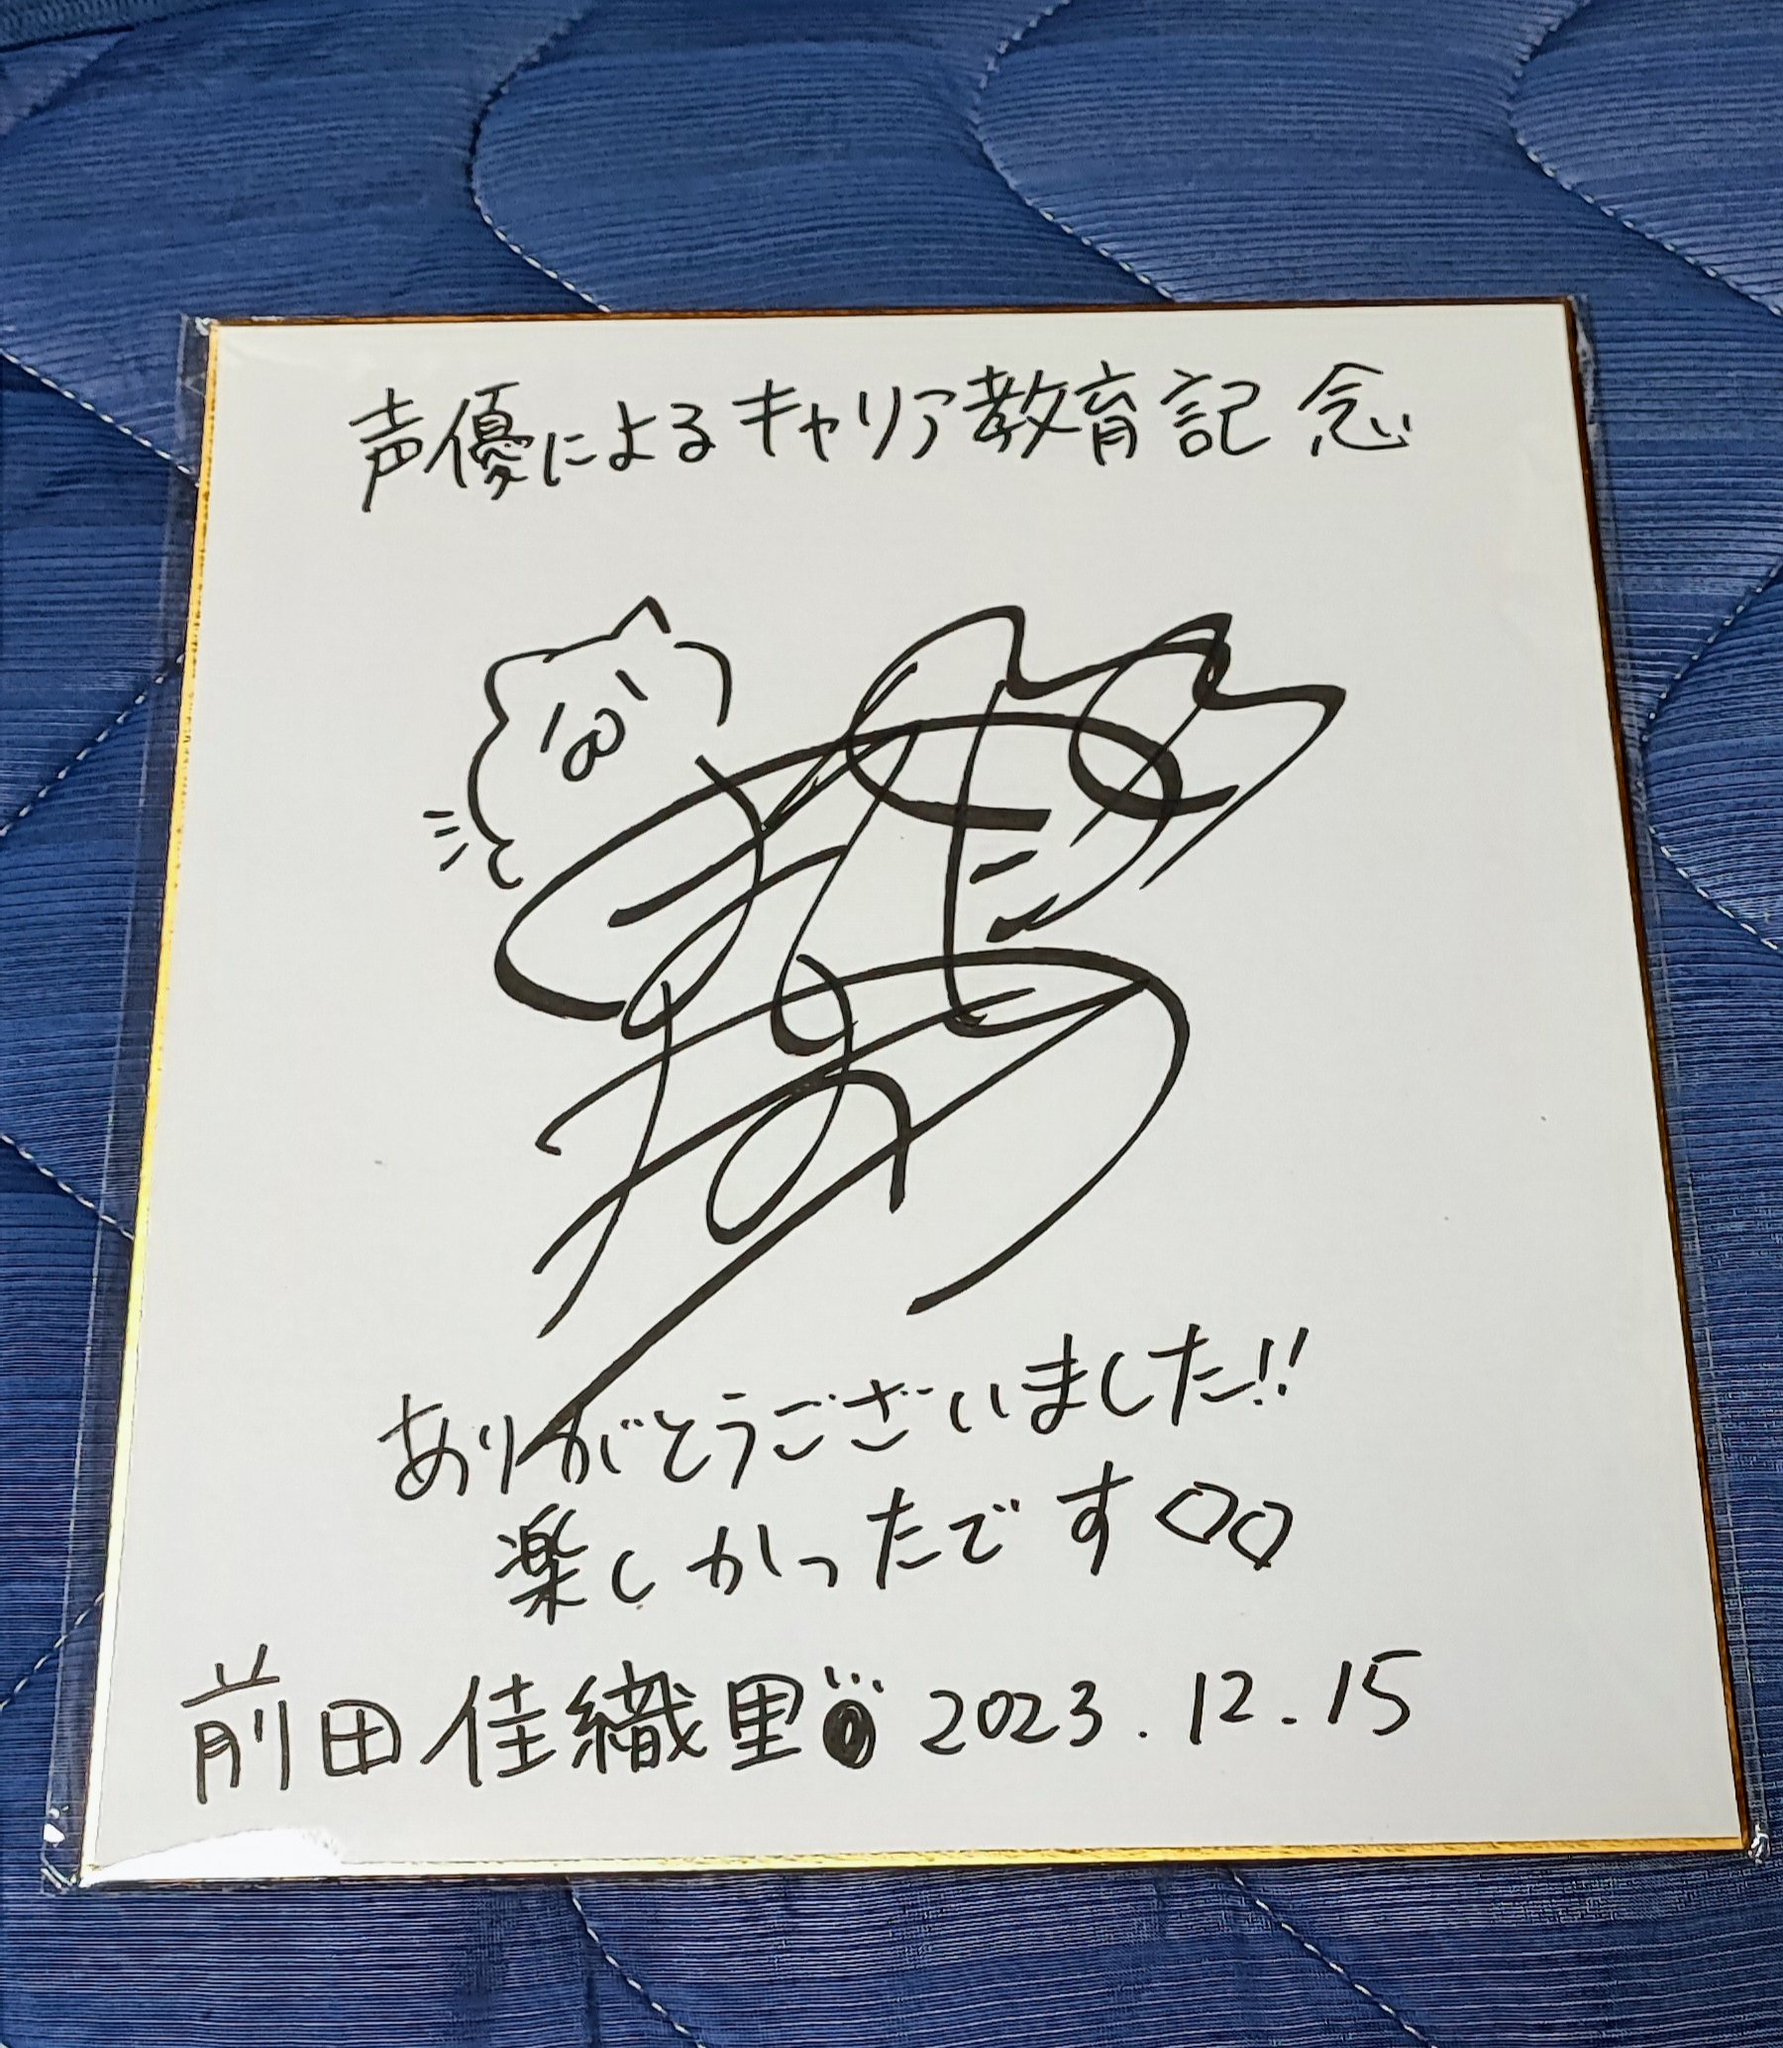 声優によるキャリア教育記念
ありがとうございました!!
楽しかったです♡♡
前田佳織里 2023.12.15